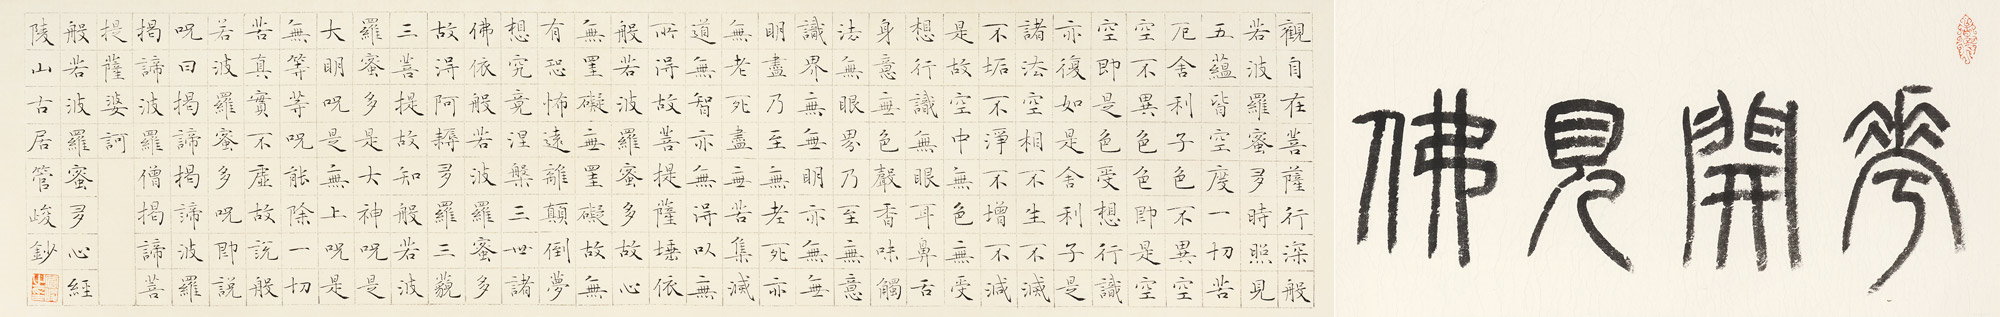 華開見佛
觀自在菩薩行深般
若波羅蜜多時照見
五蘊皆空度一切苦
厄舍利子色不異空
空不異色色即是空
空即是色受想行識
亦復如是舍利子是
諸法空相不生不滅
不垢不淨不增不減
是故空中無色無受
想行識無眼耳鼻舌
身意無色聲香味觸
法無眼界乃至無意
識界無無明亦無無
明盡乃至無老死亦
無老死盡無苦集滅
道無智亦無得以無
所得故菩提薩埵依
般若波羅蜜多故心
無罣礙無罣礙故無
有恐怖遠離顛倒夢
想究竟涅槃三世諸
佛依般若波羅蜜多
故得阿耨多羅三藐
三菩提故知般若波
羅蜜多是大神呪是
大明呪是無上呪是
無等等呪能除一切
苦真實不虛故說般
若波羅蜜多呪即說
呪曰揭諦揭諦波羅
揭諦波羅僧揭諦菩
提薩婆訶
般若波羅蜜多心經
陵山古居管峻鈔